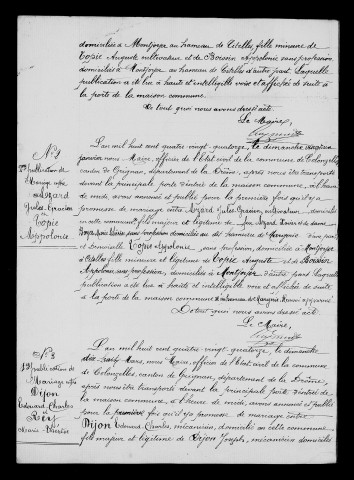 domiciliée à Montjoyer au hameau de Citelles fille mineure de
Topie Auguste cultivateur et de Boissin Appolonie sans profession
domiciliés à Montjoyer au hameau de Citelles d'autre part. Laquelle
publication a été lue à haute et intelligible voix et affichée de suite à
la porte de la maison commune.
De tout quoi nous avons dressé acte.
Le Maire,
N° 2
publication de
Mariage entre
Jules
et
Topie
Appolonie
L'an mil huit cent quatre vingt-quatorze, le dimanche vingt-un
janvier nous Maire, officier de l'état civil de la commune de Colonzelle,
canton de Grignan, département de la Drôme, après nous être transporté
devant la principale porte d'entrée de la maison commune, à l'heure
de midi, avons annoncé et publié pour la première fois qu'il y a
promesse de mariage entre
en cette commune fils majeur et légitime de
sans profession domiciliés
et Demoiselle Topie Appolonie, sans profession, domiciliée à Montjoyer
à Citelles fille mineure et légitime de Topie Auguste et de Boissin
Appolonie sans profession, domiciliés à Montjoyer d'autre part. Laquelle
publication a été lue à haute et intelligible voix et affichée de suite
à la porte de la maison commune
De tout quoi nous avons dressé acte.
Le Maire,
N° 3
1ère publication de
Mariage entre
Dijon
Edouard Charles
et
Marie
L'an mil huit cent quatre vingt-quatorze, le dimanche
Mars, nous Maire, officier de l'état civil de la commune
de Colonzelles, canton de Grignan, département de la Drôme
après nous être transporté devant la principale porte d'entrée de
la maison commune, à l'heure de midi, avons annoncé et publié
pour la première fois qu'il y a promesse de mariage entre
Dijon Edouard Charles, mécanicien, domicilié en cette commune
fils majeur et légitime de Dijon Joseph, mécanicien domicilié